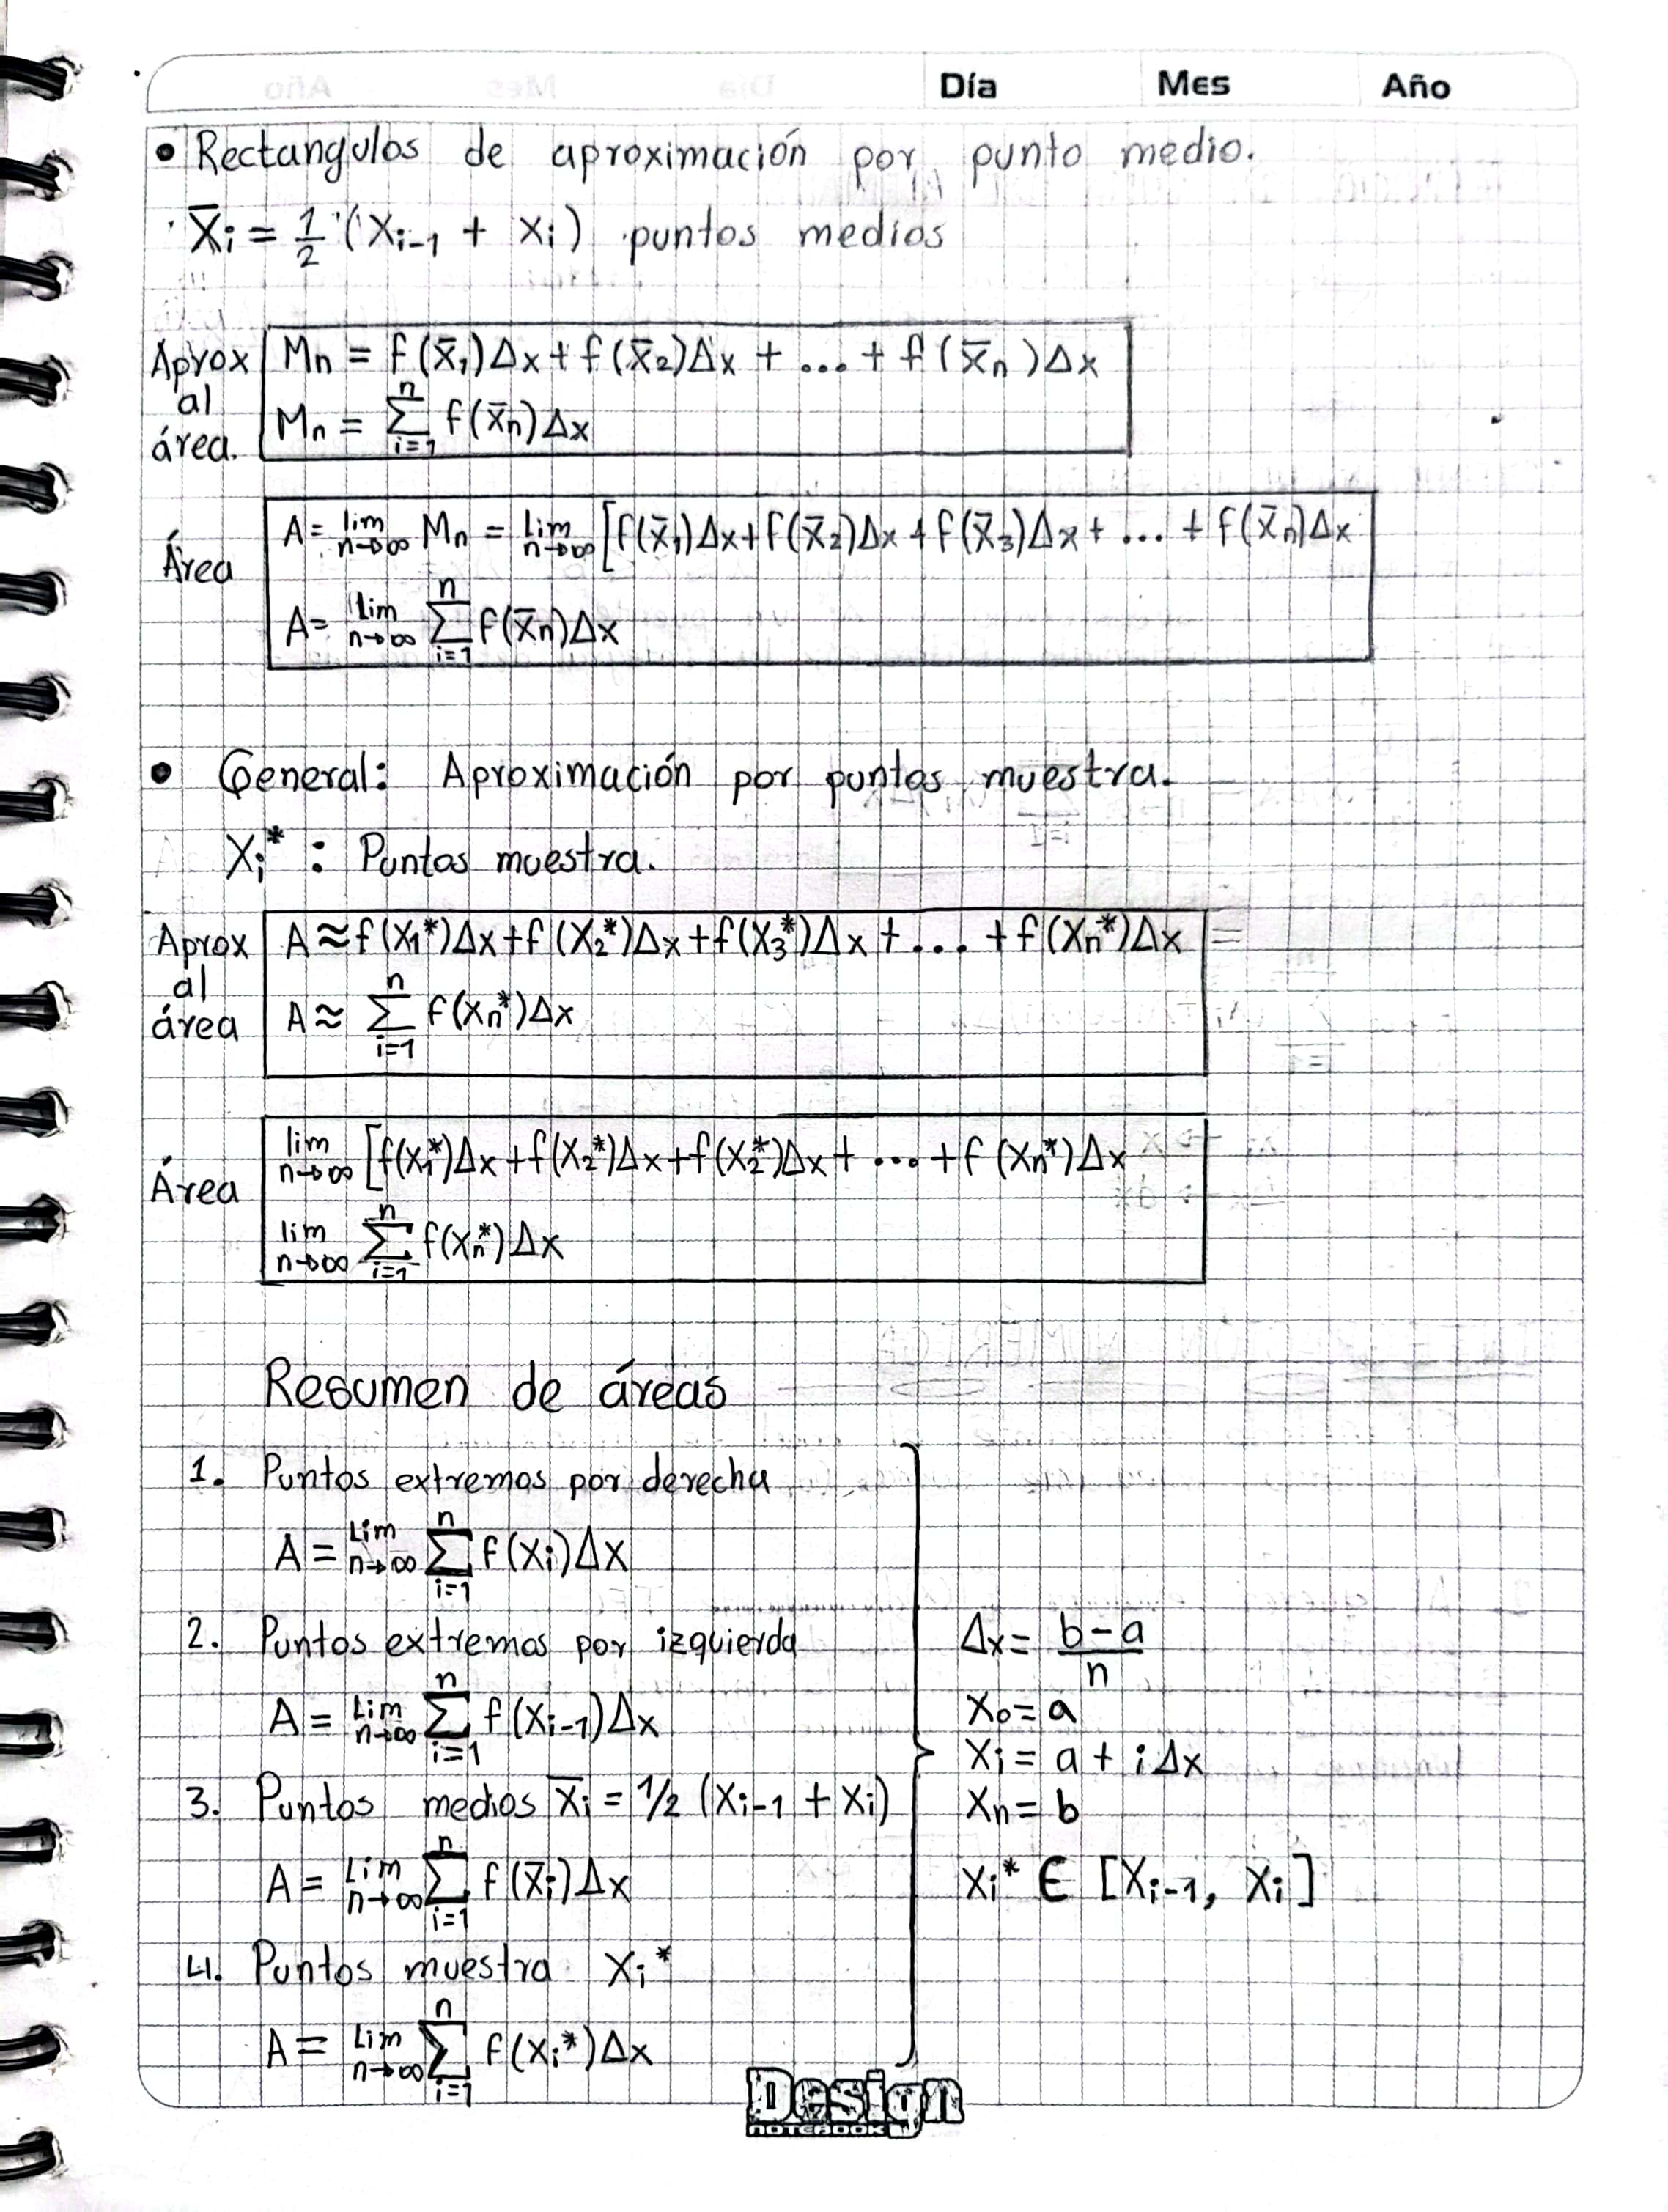 Día Mes Año
• Rectangulos de aproximación por punto medio.
X̅i = 1/2 (Xi-1 + Xi) puntos medios
Aprox al área.
Mn = f(x̅1)Δx + f(x̅2)Δx + ... + f(x̅n)Δx
Mn = Σ_{i=1}^{n} f(x̅n)Δx
Área
A = lim_{n→∞} Mn = lim_{n→∞} [f(x̅1)Δx + f(x̅2)Δx + f(x̅3)Δx + ... + f(x̅n)Δx
A = lim_{n→∞} Σ_{i=1}^{n} f(x̅n)Δx
• General: Aproximación por puntos muestra.
Xi* : Puntos muestra.
Aprox al área
A ≈ f(X1*)Δx + f(X2*)Δx + f(X3*)Δx + ... + f(Xn*)Δx =
A ≈ Σ_{i=1}^{n} f(Xn*)Δx
Área
lim_{n→∞} [f(X1*)Δx + f(X2*)Δx + f(X2*)Δx + ... + f(Xn*)Δx
lim_{n→∞} Σ_{i=1}^{n} f(Xn*)Δx
Resumen de áreas
1. Puntos extremos por derecha
A = Lim_{n→∞} Σ_{i=1}^{n} f(Xi)Δx
2. Puntos extremos por izquierda
A = Lim_{n→∞} Σ_{i=1}^{n} f(Xi-1)Δx
3. Puntos medios X̅i = 1/2 (Xi-1 + Xi)
A = Lim_{n→∞} Σ_{i=1}^{n} f(X̅i)Δx
4. Puntos muestra Xi*
A = Lim_{n→∞} Σ_{i=1}^{n} f(Xi*)Δx
Δx = (b-a)/n
X0 = a
Xi = a + iΔx
Xn = b
Xi* ∈ [Xi-1, Xi]
Design
NOTEBOOK